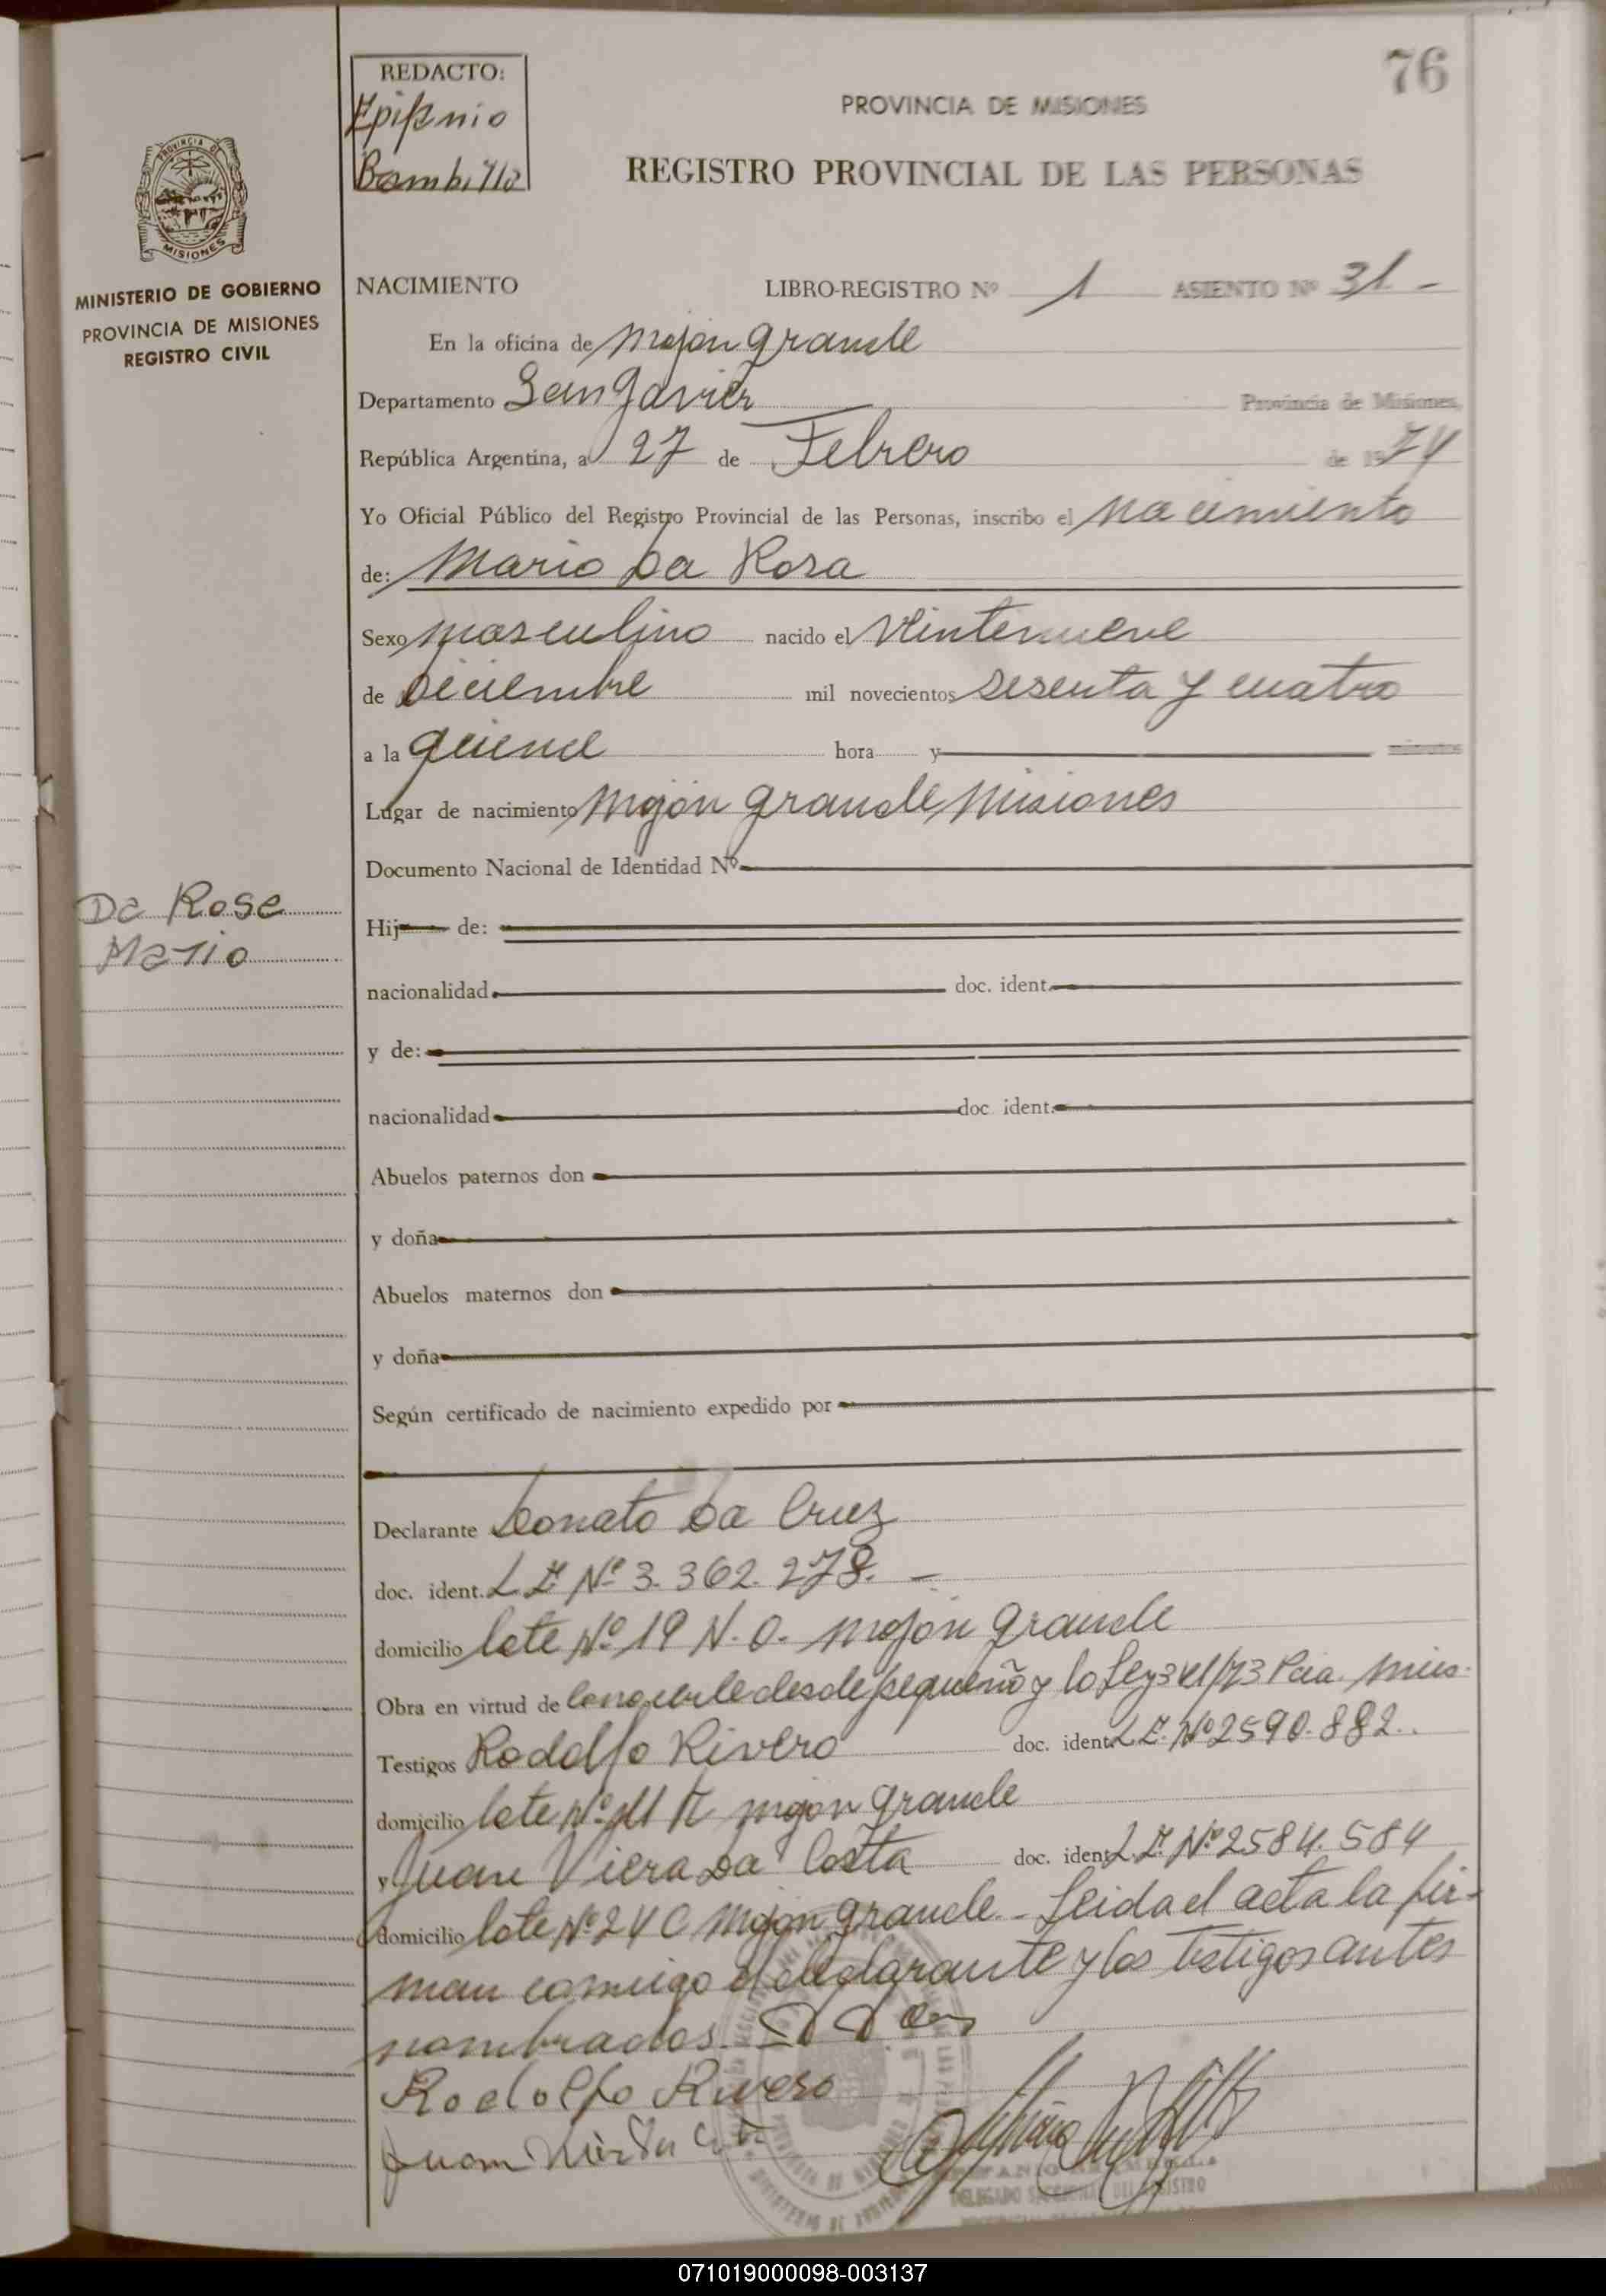 76
REDACTO:
Epifanio
Bambilla
PROVINCIA DE MISIONES
REGISTRO PROVINCIAL DE LAS PERSONAS
PROVINCIA DE
MISIONES
MINISTERIO DE GOBIERNO
PROVINCIA DE MISIONES
REGISTRO CIVIL
NACIMIENTO LIBRO-REGISTRO Nº 1 ASIENTO Nº 31 -
En la oficina de Mojón grande
Departamento San Javier Provincia de Misiones,
República Argentina, a 27 de Febrero de 1974
Yo Oficial Público del Registro Provincial de las Personas, inscribo el nacimiento
de: Mario Da Rosa
Sexo masculino nacido el veintenueve
de Diciembre mil novecientos sesenta y cuatro
a la quince hora y minutos
Lugar de nacimiento Mojón grande Misiones
Documento Nacional de Identidad Nº
Da Rosa
Mario
Hij de:
nacionalidad doc. ident.
y de:
nacionalidad doc. ident.
Abuelos paternos don
y doña
Abuelos maternos don
y doña
Según certificado de nacimiento expedido por
Declarante Donato Da Cruz
doc. ident. L.E. Nº 3.362.278. -
domicilio lote Nº 19 N.O. Mojón grande
Obra en virtud de conocerle desde pequeño y lo Ley Pcia. Mis.
Testigos Rodolfo Rivero doc. ident. L.E. Nº 2590.882.
domicilio lote Nº Mojón grande
y Juan Viera Da Costa doc. ident. L.E. Nº 2584.584
domicilio lote Nº 24 C Mojón grande - Leida el acta la fir-
man conmigo el declarante y los testigos antes
nombrados.
Rodolfo Rivero
Juan
DELEGADO SECCIONAL DEL REGISTRO
071019000098-003137